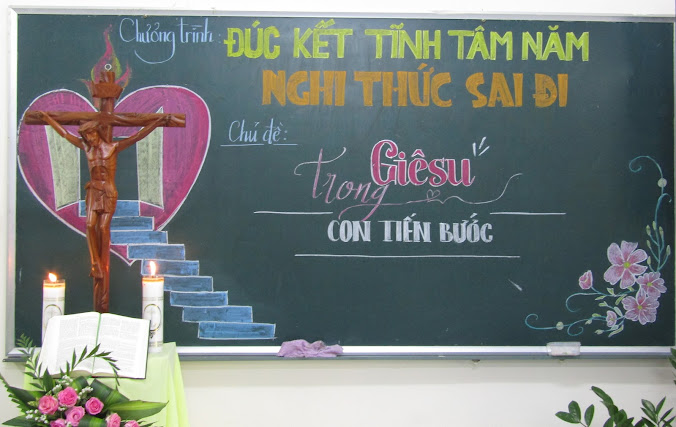 Chương trình: ĐÚC KẾT TĨNH TÂM NĂM
NGHI THỨC SAI ĐI
Chủ đề:
trong Giêsu
CON TIẾN BƯỚC